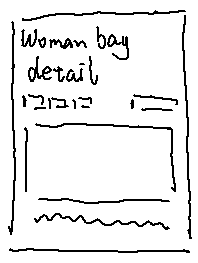 Woman bag
detail